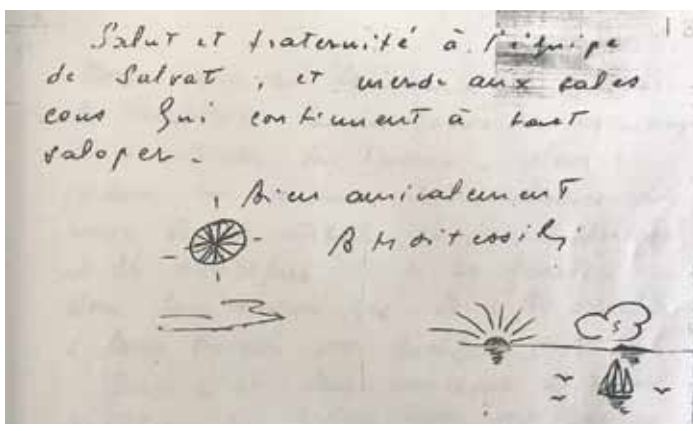 Salut et fraternité à l'équipe
de Salvat, et merde aux sales
cons qui continuent à tout
saloper.
Bien amicalement
B Moitessier